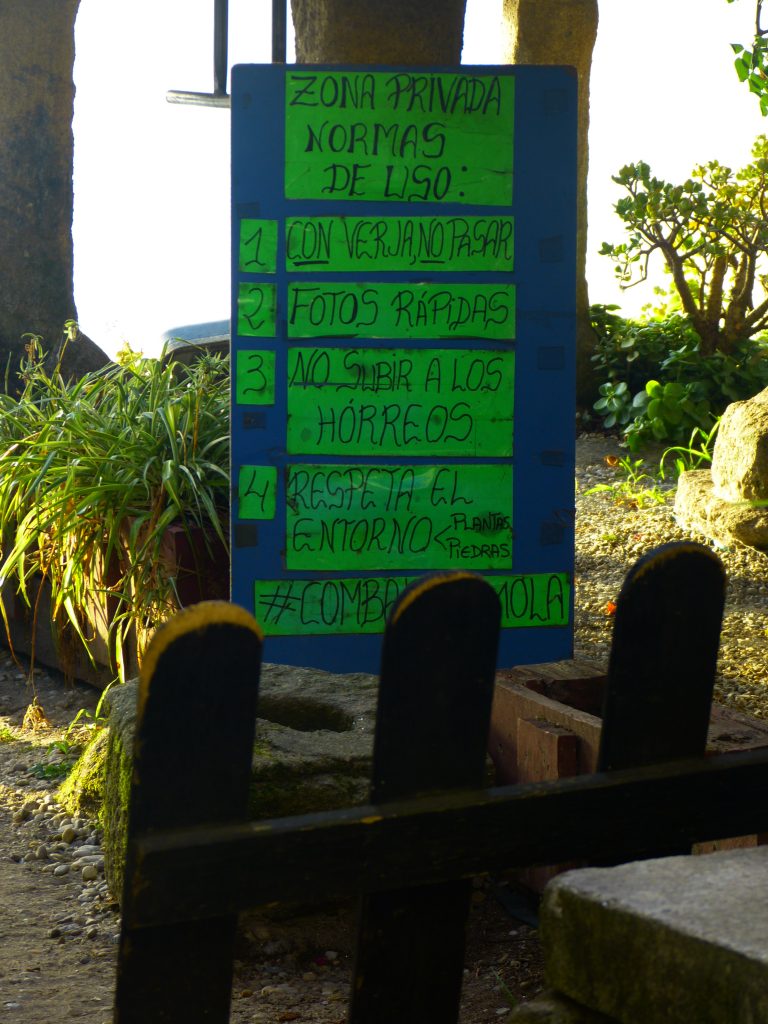 ZONA PRIVADA
NORMAS
DE USO:
1 CON VERJA, NO PASAR
2 FOTOS RÁPIDAS
3 NO SUBIR A LOS
HÓRREOS
4 RESPETA EL
ENTORNO < PLANTAS
PIEDRAS